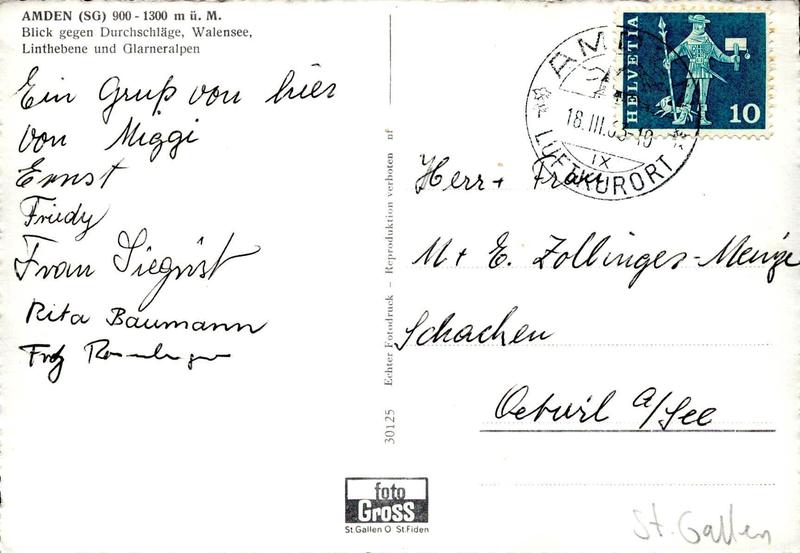 AMDEN (SG) 900 - 1300 m ü. M.
Blick gegen Durchschläge, Walensee,
Linthebene und Glarneralpen
Ein Gruß von hier
von Miggi
Ernst
Friedy
Frau Siegrist
Rita Baumann
30125 Echter Fotodruck - Reproduktion verboten nf
HELVETIA
10
18.III.
LUFTKURORT
IX
Herr + Frau
M + E. Zollinger-
Schachen
Oetwil a/See
foto
Gross
St.Gallen O St.Fiden
St. Gallen